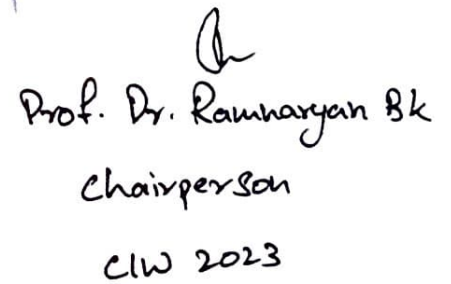 Prof. Dr. Ramnaryan Bk
Chairperson
CIW 2023